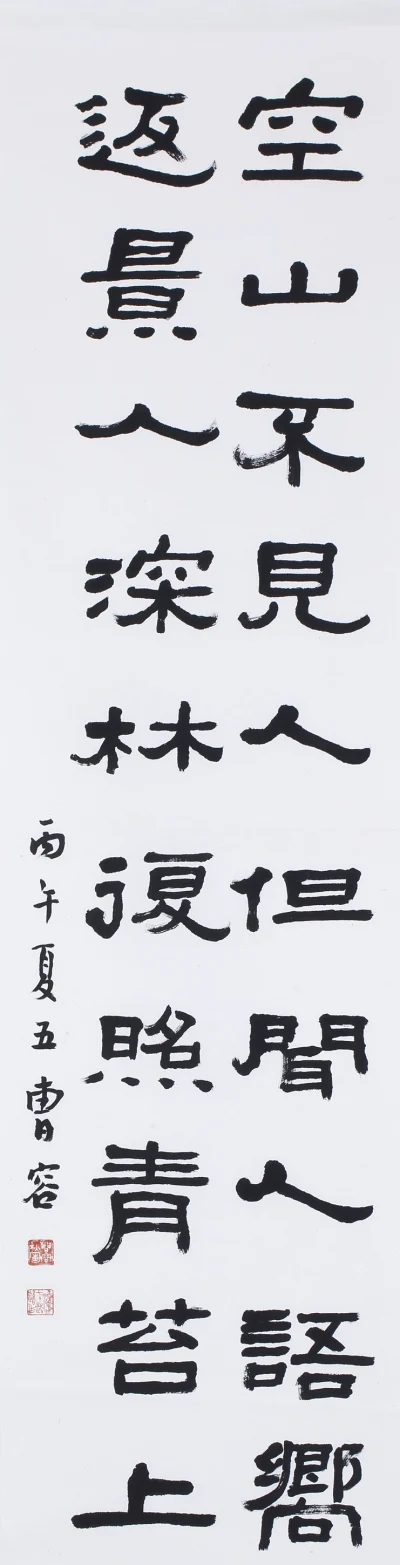 空山不見人但聞人語嚮
返景入深林復照青苔上
丙午夏五曹容